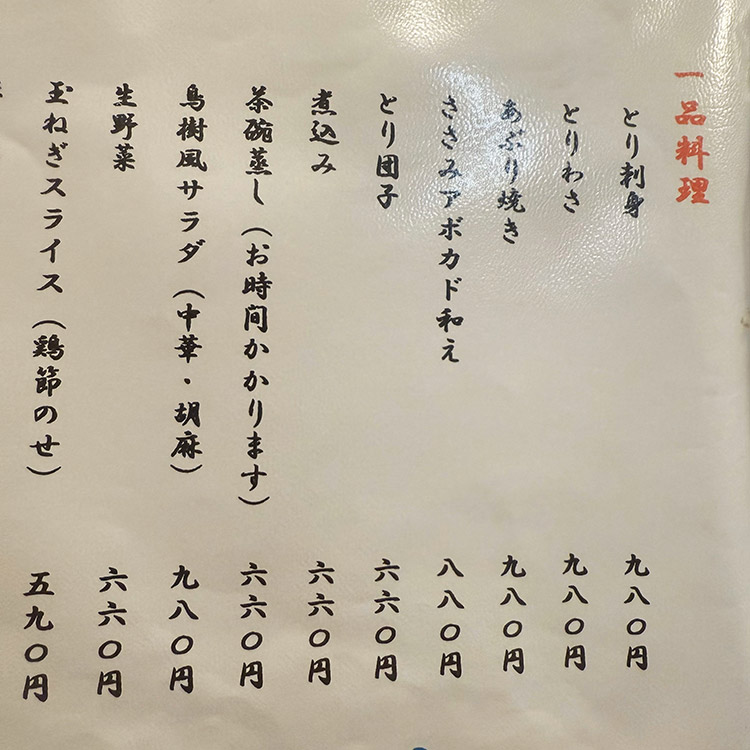 一品料理
とり刺身 九八〇円
とりわさ 九八〇円
あぶり焼き 九八〇円
ささみアボカド和え 八八〇円
とり団子 六六〇円
煮込み 六六〇円
茶碗蒸し（お時間かかります） 六六〇円
鳥樹風サラダ（中華・胡麻） 九八〇円
生野菜 六六〇円
玉ねぎスライス（鶏節のせ） 五九〇円